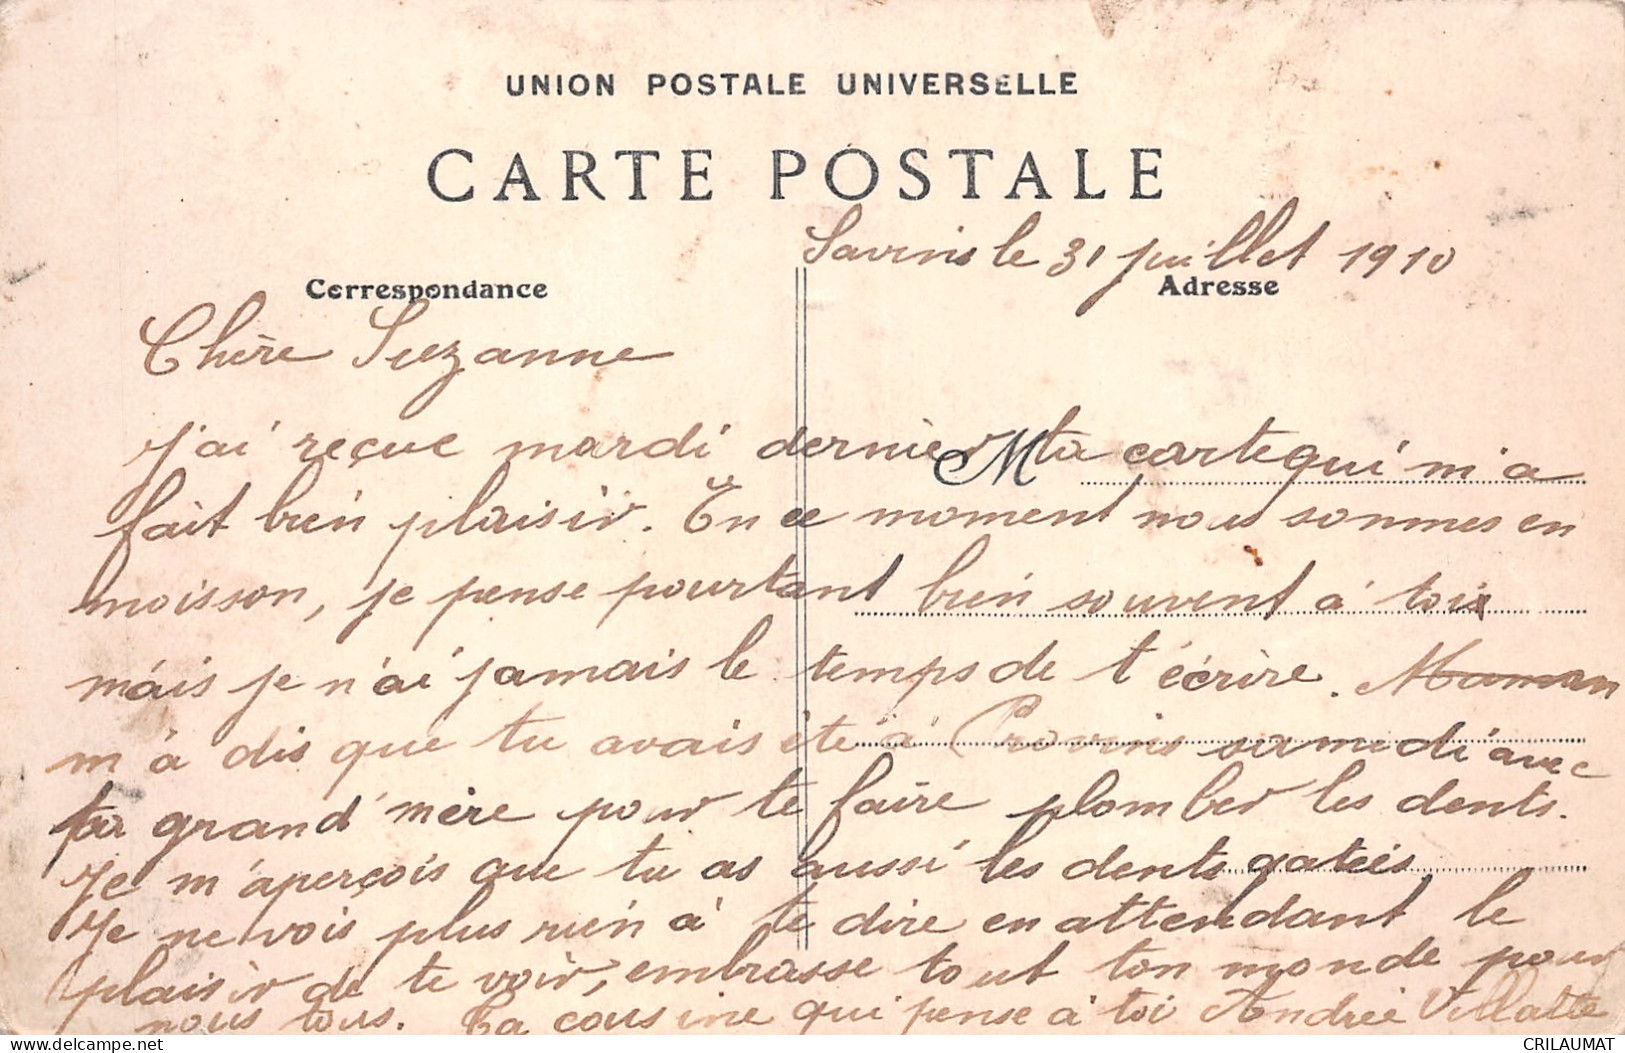 UNION POSTALE UNIVERSELLE
CARTE POSTALE
Savins le 31 juillet 1910
Correspondance
Adresse
Chère Suzanne
J'ai reçue mardi dernier ta carte qui m'a
M
fait bien plaisir. En ce moment nous sommes en
moisson, je pense pourtant bien souvent à toi
mais je n'ai jamais le temps de t'écrire. Maman
m'a dis que tu avais été à Provins samedi avec
ta grand'mère pour te faire plomber les dents.
Je m'aperçois que tu as aussi les dents gatées
Je ne vois plus rien à te dire en attendant le
plaisir de te voir, embrasse tout ton monde pour
nous tous. Ta cousine qui pense à toi Andrée Villatte
www.delcampe.net
CRILAUMAT